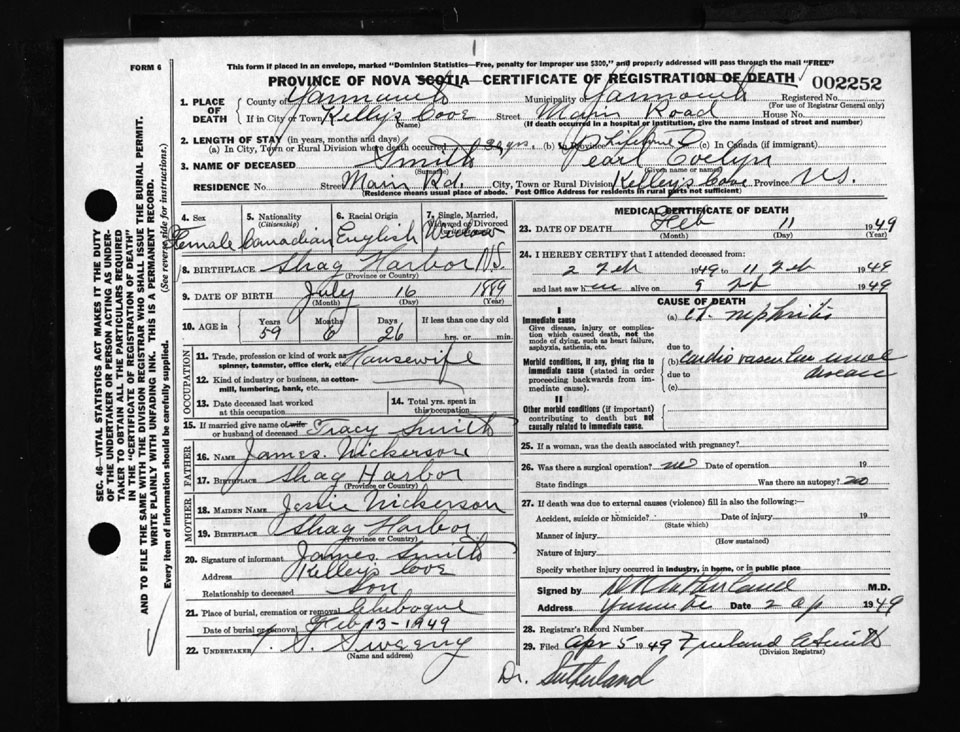 FORM 6
This form if placed in an envelope, marked "Dominion Statistics—Free, penalty for improper use $300," and properly addressed will pass through the mail "FREE"
PROVINCE OF NOVA SCOTIA—CERTIFICATE OF REGISTRATION OF DEATH
002252
1. PLACE OF DEATH
County of Yarmouth Municipality of Yarmouth Registered No.
(For use of Registrar General only)
If in City or Town Kelly's Cove Street Main Road House No.
(Name) (If death occurred in a hospital or institution, give the name instead of street and number)
2. LENGTH OF STAY (in years, months and days)
(a) In City, Town or Rural Division where death occurred 30 yrs. (b) in Province Lifetime (c) In Canada (if immigrant)
3. NAME OF DECEASED Smith Pearl Evelyn
(Surname) (Given name or names)
RESIDENCE No. Street Main Rd. City, Town or Rural Division Kelley's Cove Province N.S.
(Residence means usual place of abode. Post Office Address for residents in rural parts not sufficient)
4. Sex Female
5. Nationality (Citizenship) Canadian
6. Racial Origin English
7. Single, Married, Widowed or Divorced Widow
8. BIRTHPLACE Shag Harbor N.S.
(Province or Country)
9. DATE OF BIRTH July 16 1889
(Month) (Day) (Year)
10. AGE in Years Months Days If less than one day old
59 6 26 hrs. or min.
OCCUPATION
11. Trade, profession or kind of work as spinner, teamster, office clerk, etc. Housewife
12. Kind of industry or business, as cotton-mill, lumbering, bank, etc.
13. Date deceased last worked at this occupation
14. Total yrs. spent in this occupation
15. If married give name of wife or husband of deceased Tracy Smith
FATHER
16. Name James Nickerson
17. Birthplace Shag Harbor
(Province or Country)
MOTHER
18. Maiden Name Jessie Nickerson
19. Birthplace Shag Harbor
(Province or Country)
20. Signature of informant James Smith
Address Kelley's Cove
Relationship to deceased Son
21. Place of burial, cremation or removal Chebogue
Date of burial or removal Feb 13-1949
22. UNDERTAKER Sweeny
(Name and address)
MEDICAL CERTIFICATE OF DEATH
23. DATE OF DEATH Feb 11 1949
(Month) (Day) (Year)
24. I HEREBY CERTIFY that I attended deceased from:
2 Feb 1949 to 11 Feb 1949
and last saw her alive on 9 Feb 1949
CAUSE OF DEATH
I
Immediate cause
Give disease, injury or complication which caused death, not the mode of dying, such as heart failure, asphyxia, asthenia, etc.
(a) Ch. nephritis
due to
Morbid conditions, if any, giving rise to immediate cause (stated in order proceeding backwards from immediate cause).
(b) Cardio vascular renal disease
due to
(c)
II
Other morbid conditions (if important) contributing to death but not causally related to immediate cause.
25. If a woman, was the death associated with pregnancy?
26. Was there a surgical operation? no Date of operation 19
State findings Was there an autopsy? no
27. If death was due to external causes (violence) fill in also the following:—
Accident, suicide or homicide? Date of injury 19
(State which)
Manner of injury
(How sustained)
Nature of injury
Specify whether injury occurred in industry, in home, or in public place
Signed by M.D.
Address Date 2 Ap 1949
28. Registrar's Record Number
29. Filed Apr 5 1949 Smith
(Division Registrar)
Dr. Sutherland
SEC. 46—VITAL STATISTICS ACT MAKES IT THE DUTY
OF THE UNDERTAKER OR PERSON ACTING AS UNDER-
TAKER TO OBTAIN ALL THE PARTICULARS REQUIRED
IN THE "CERTIFICATE OF REGISTRATION OF DEATH"
AND TO FILE THE SAME WITH THE DIVISION REGISTRAR WHO SHALL ISSUE THE BURIAL PERMIT.
WRITE PLAINLY WITH UNFADING INK. THIS IS A PERMANENT RECORD.
Every item of information should be carefully supplied. (See reverse side for instructions.)